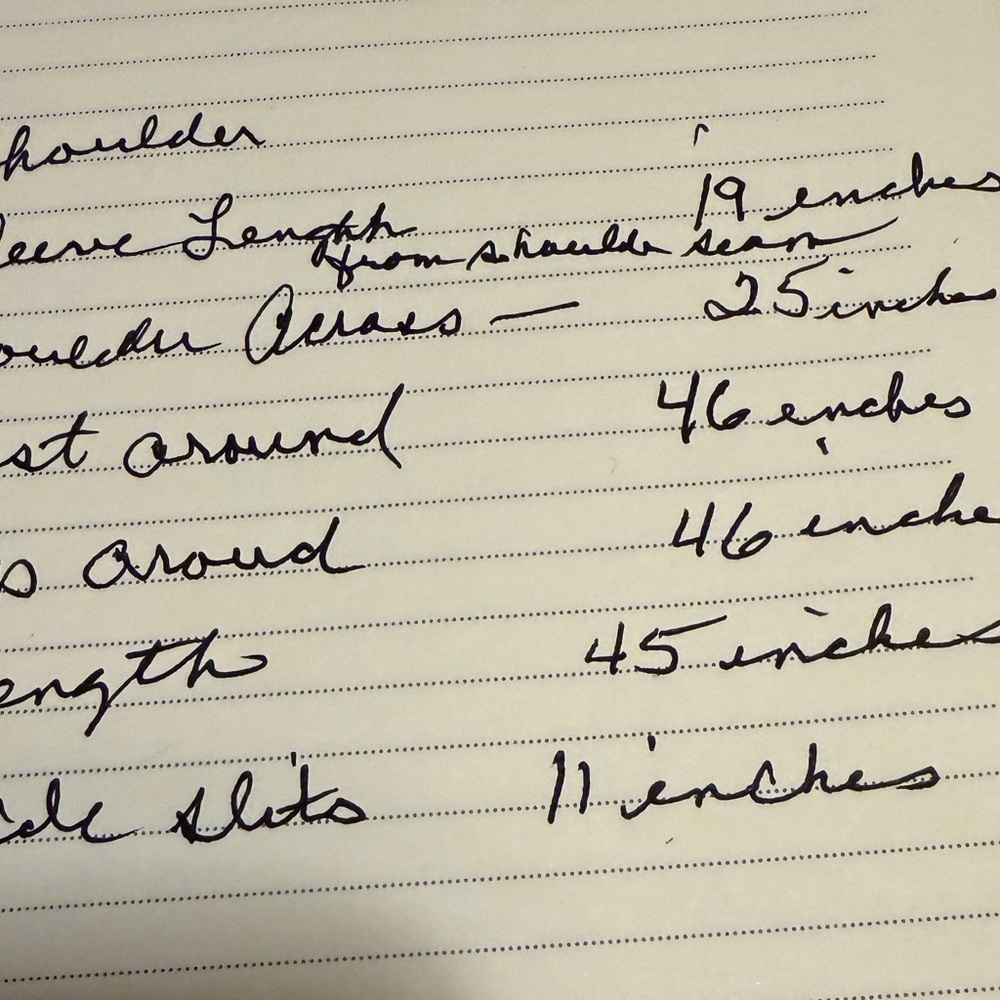 houlder
leeve Length 19 inches
from shoulder seam
oulder Across — 25 inches
st around 46 inches
s aroud 46 inche
ength 45 inches
ide slits 11 inches